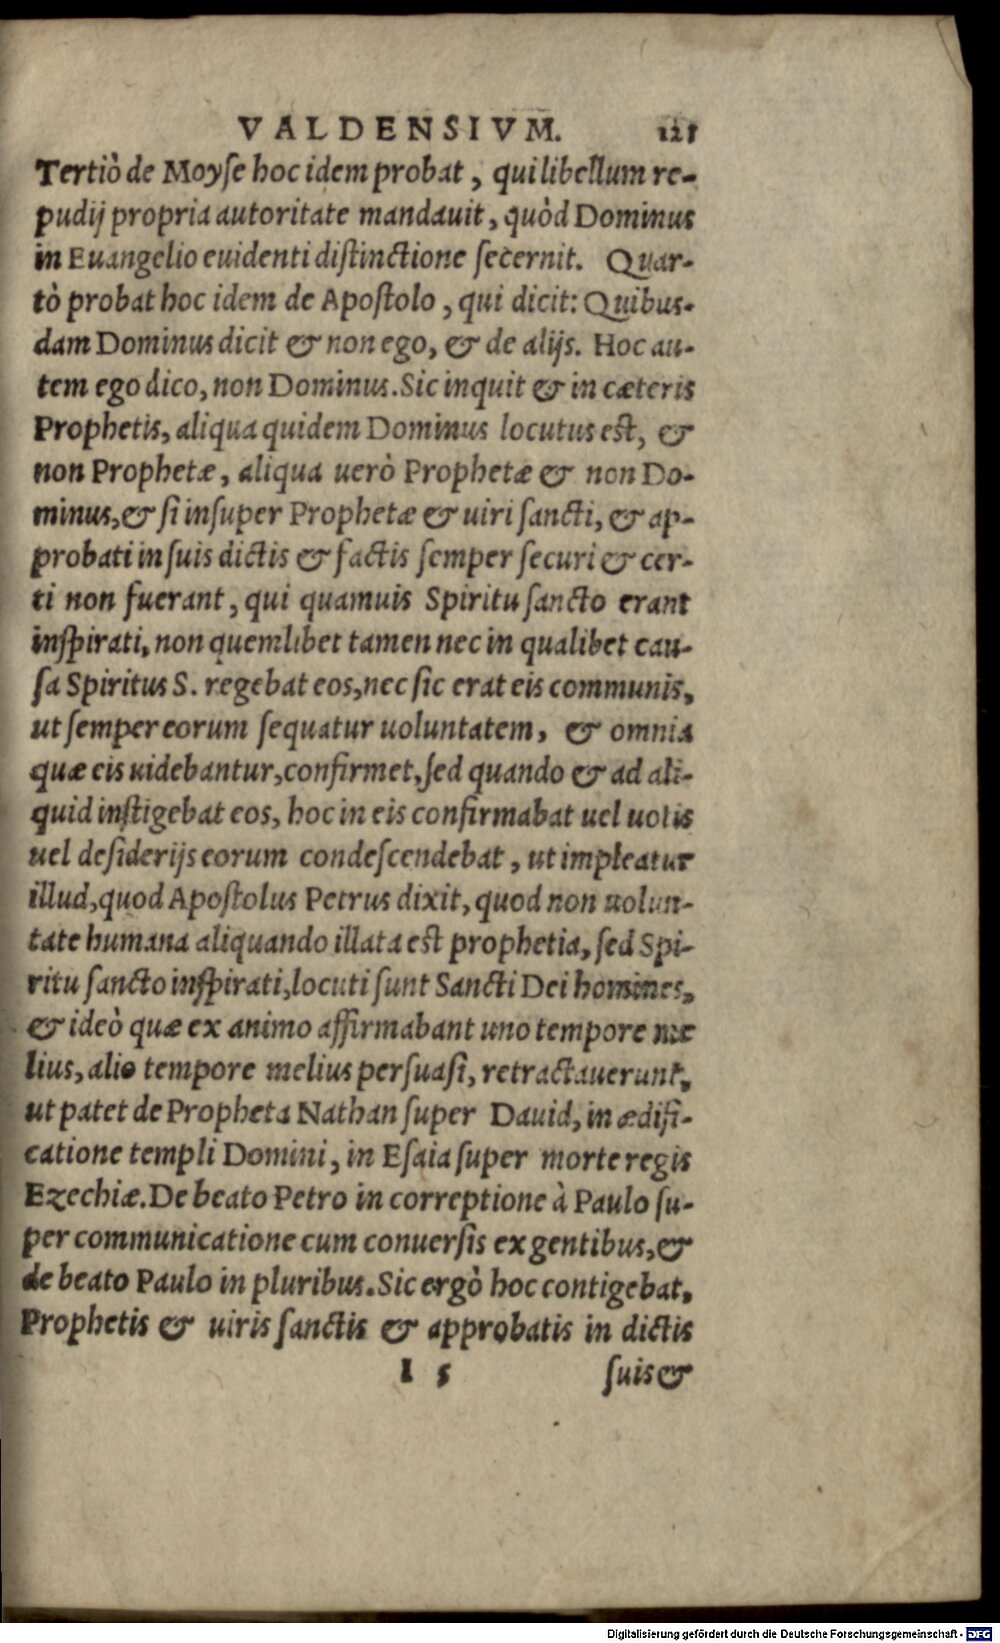 VALDENSIVM. 121
Tertiò de Moyse hoc idem probat, qui libellum re-
pudij propria autoritate mandauit, quòd Dominus
in Euangelio euidenti distinctione secernit. Quar-
tò probat hoc idem de Apostolo, qui dicit: Quibus-
dam Dominus dicit & non ego, & de alijs. Hoc au-
tem ego dico, non Dominus. Sic inquit & in cæteris
Prophetis, aliqua quidem Dominus locutus est, &
non Prophetæ, aliqua uerò Prophetæ & non Do-
minus, & si insuper Prophetæ & uiri sancti, & ap-
probati in suis dictis & factis semper securi & cer-
ti non fuerant, qui quamuis Spiritu sancto erant
inspirati, non quemlibet tamen nec in qualibet cau-
sa Spiritus S. regebat eos, nec sic erat eis communis,
ut semper eorum sequatur uoluntatem, & omnia
quæ eis uidebantur, confirmet, sed quando & ad ali-
quid instigebat eos, hoc in eis confirmabat uel uotis
uel desiderijs eorum condescendebat, ut impleatur
illud, quod Apostolus Petrus dixit, quod non uolun-
tate humana aliquando illata est prophetia, sed Spi-
ritu sancto inspirati, locuti sunt Sancti Dei homines,
& ideò quæ ex animo affirmabant uno tempore me
lius, alio tempore melius persuasi, retractauerunt,
ut patet de Propheta Nathan super Dauid, in ædifi-
catione templi Domini, in Esaia super morte regis
Ezechiæ. De beato Petro in correptione à Paulo su-
per communicatione cum conuersis ex gentibus, &
de beato Paulo in pluribus. Sic ergò hoc contigebat,
Prophetis & uiris sanctis & approbatis in dictis
I 5 suis &
Digitalisierung gefördert durch die Deutsche Forschungsgemeinschaft - DFG